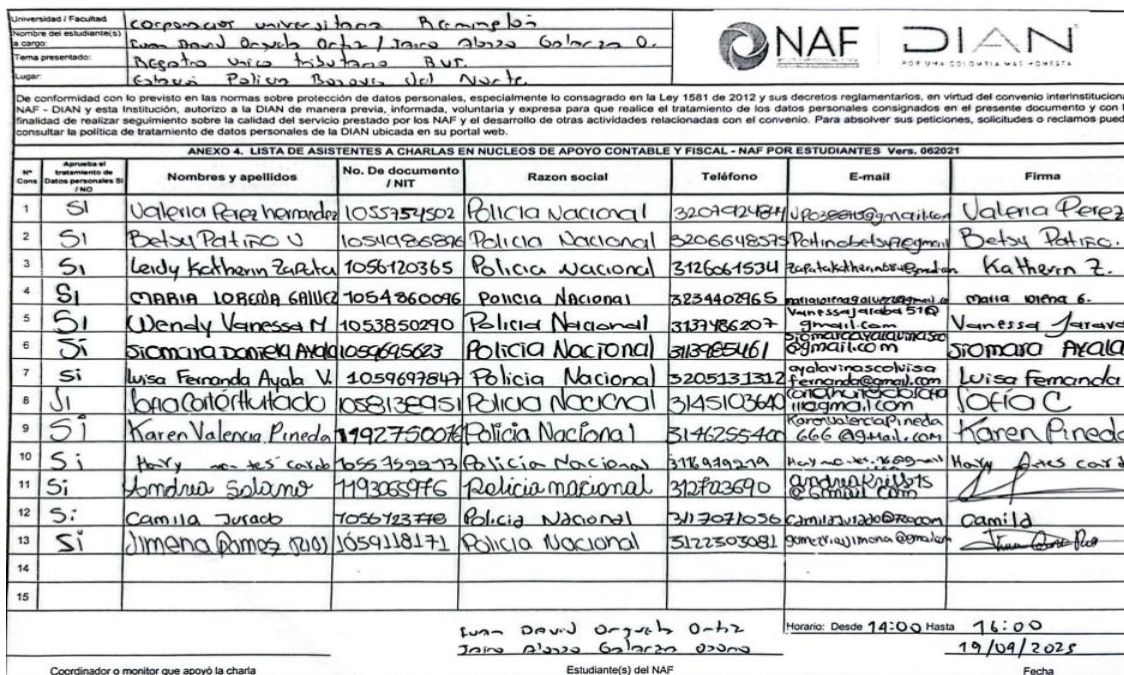 Universidad / Facultad corporacion universitaria Remington
Nombre del estudiante(s) a cargo: Ivan David Orguela Ortiz / Jairo Alonzo Galarza O.
Tema presentado: Registro Unico tributario Rut.
Lugar: Policia del Norte.
NAF DIAN
POR UNA COLOMBIA MAS HONESTA
De conformidad con lo previsto en las normas sobre protección de datos personales, especialmente lo consagrado en la Ley 1581 de 2012 y sus decretos reglamentarios, en virtud del convenio interinstituciona
NAF - DIAN y esta Institución, autorizo a la DIAN de manera previa, informada, voluntaria y expresa para que realice el tratamiento de los datos personales consignados en el presente documento y con l
finalidad de realizar seguimiento sobre la calidad del servicio prestado por los NAF y el desarrollo de otras actividades relacionadas con el convenio. Para absolver sus peticiones, solicitudes o reclamos pued
consultar la política de tratamiento de datos personales de la DIAN ubicada en su portal web.
ANEXO 4. LISTA DE ASISTENTES A CHARLAS EN NUCLEOS DE APOYO CONTABLE Y FISCAL - NAF POR ESTUDIANTES Vers. 062021
N° Cons Aprueba el tratamiento de Datos personales SI / NO Nombres y apellidos No. De documento / NIT Razon social Teléfono E-mail Firma
1 SI Valeria Perez hernandez 1055754502 Policia Nacional Valeria Perez
2 SI Betsy Patiño V 1054986896 Policia Nacional 3206648575 Betsy Patiño.
3 SI Leidy Katherin Zapata 1056120365 Policia Nacional 3126061534 Katherin Z.
4 SI MARIA LORENA GALVEZ 1054860096 Policia Nacional 3234402965 maria lorena G.
5 SI Wendy Vanessa M 1053850290 Policia Nacional 3137486207 Vanessajaraba51@gmail.com Vanessa Jarava
6 Si Siomara Daniela Ayala 1059695623 Policia Nacional 3113985461 Siomara Ayala
7 si Luisa Fernanda Ayala V. 1059697847 Policia Nacional 3205131312 ayalavinascoluisa fernanda@gmail.com Luisa Fernanda
8 Si 1058138951 Policia Nacional 3145103640 Sofia C
9 Si Karen Valencia Pineda 1192750076 Policia Nacional 3146255400 KarenValenciaPineda 666@gmail.com Karen Pineda
10 Si 1055759973 Policia Nacional
11 Si Andrea Solano 1193065976 Policia nacional
12 Si Camila Jurado 1056123778 Policia Nacional 3117071056 Camila
13 Si Jimena Gomez Rios 1059118171 Policia Nacional 3122303081
14
15
Ivan David Orguela Ortiz
Jairo Alonzo Galarza Osorio
Horario: Desde 14:00 Hasta 16:00
19/09/2025
Coordinador o monitor que apoyó la charla Estudiante(s) del NAF Fecha